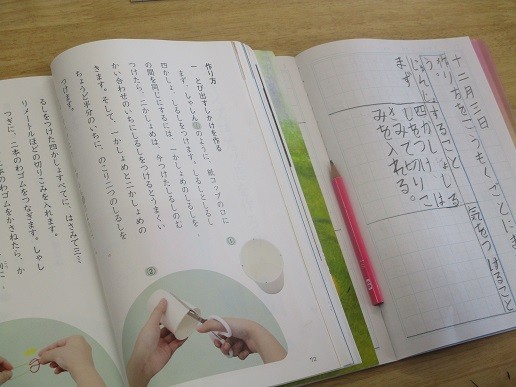 十二月三日
作り方をこうもくごとにま
気をつけること
まず
四かしょ
入れる。
作り方
一 とび出すしかけを作る
まず、しゃしん①のように、紙コップの口に
四かしょ、しるしをつけます。しるしとしるし
の間を同じにするには、一かしょめのしるしを
つけたら、二かしょめは、今つけたしるしのむ
かい合わせのいちにしるしをつけるとうまくい
きます。そして、一かしょめと二かしょめの
ちょうど半分のいちに、のこり二つのしるしを
つけます。
るしをつけた四かしょすべてに、はさみで三ミ
リメートルほどの切りこみを入れます。
つぎに、二本のわゴムをつなぎます。しゃし
本のわゴムをかさねたら、か
①
②
72